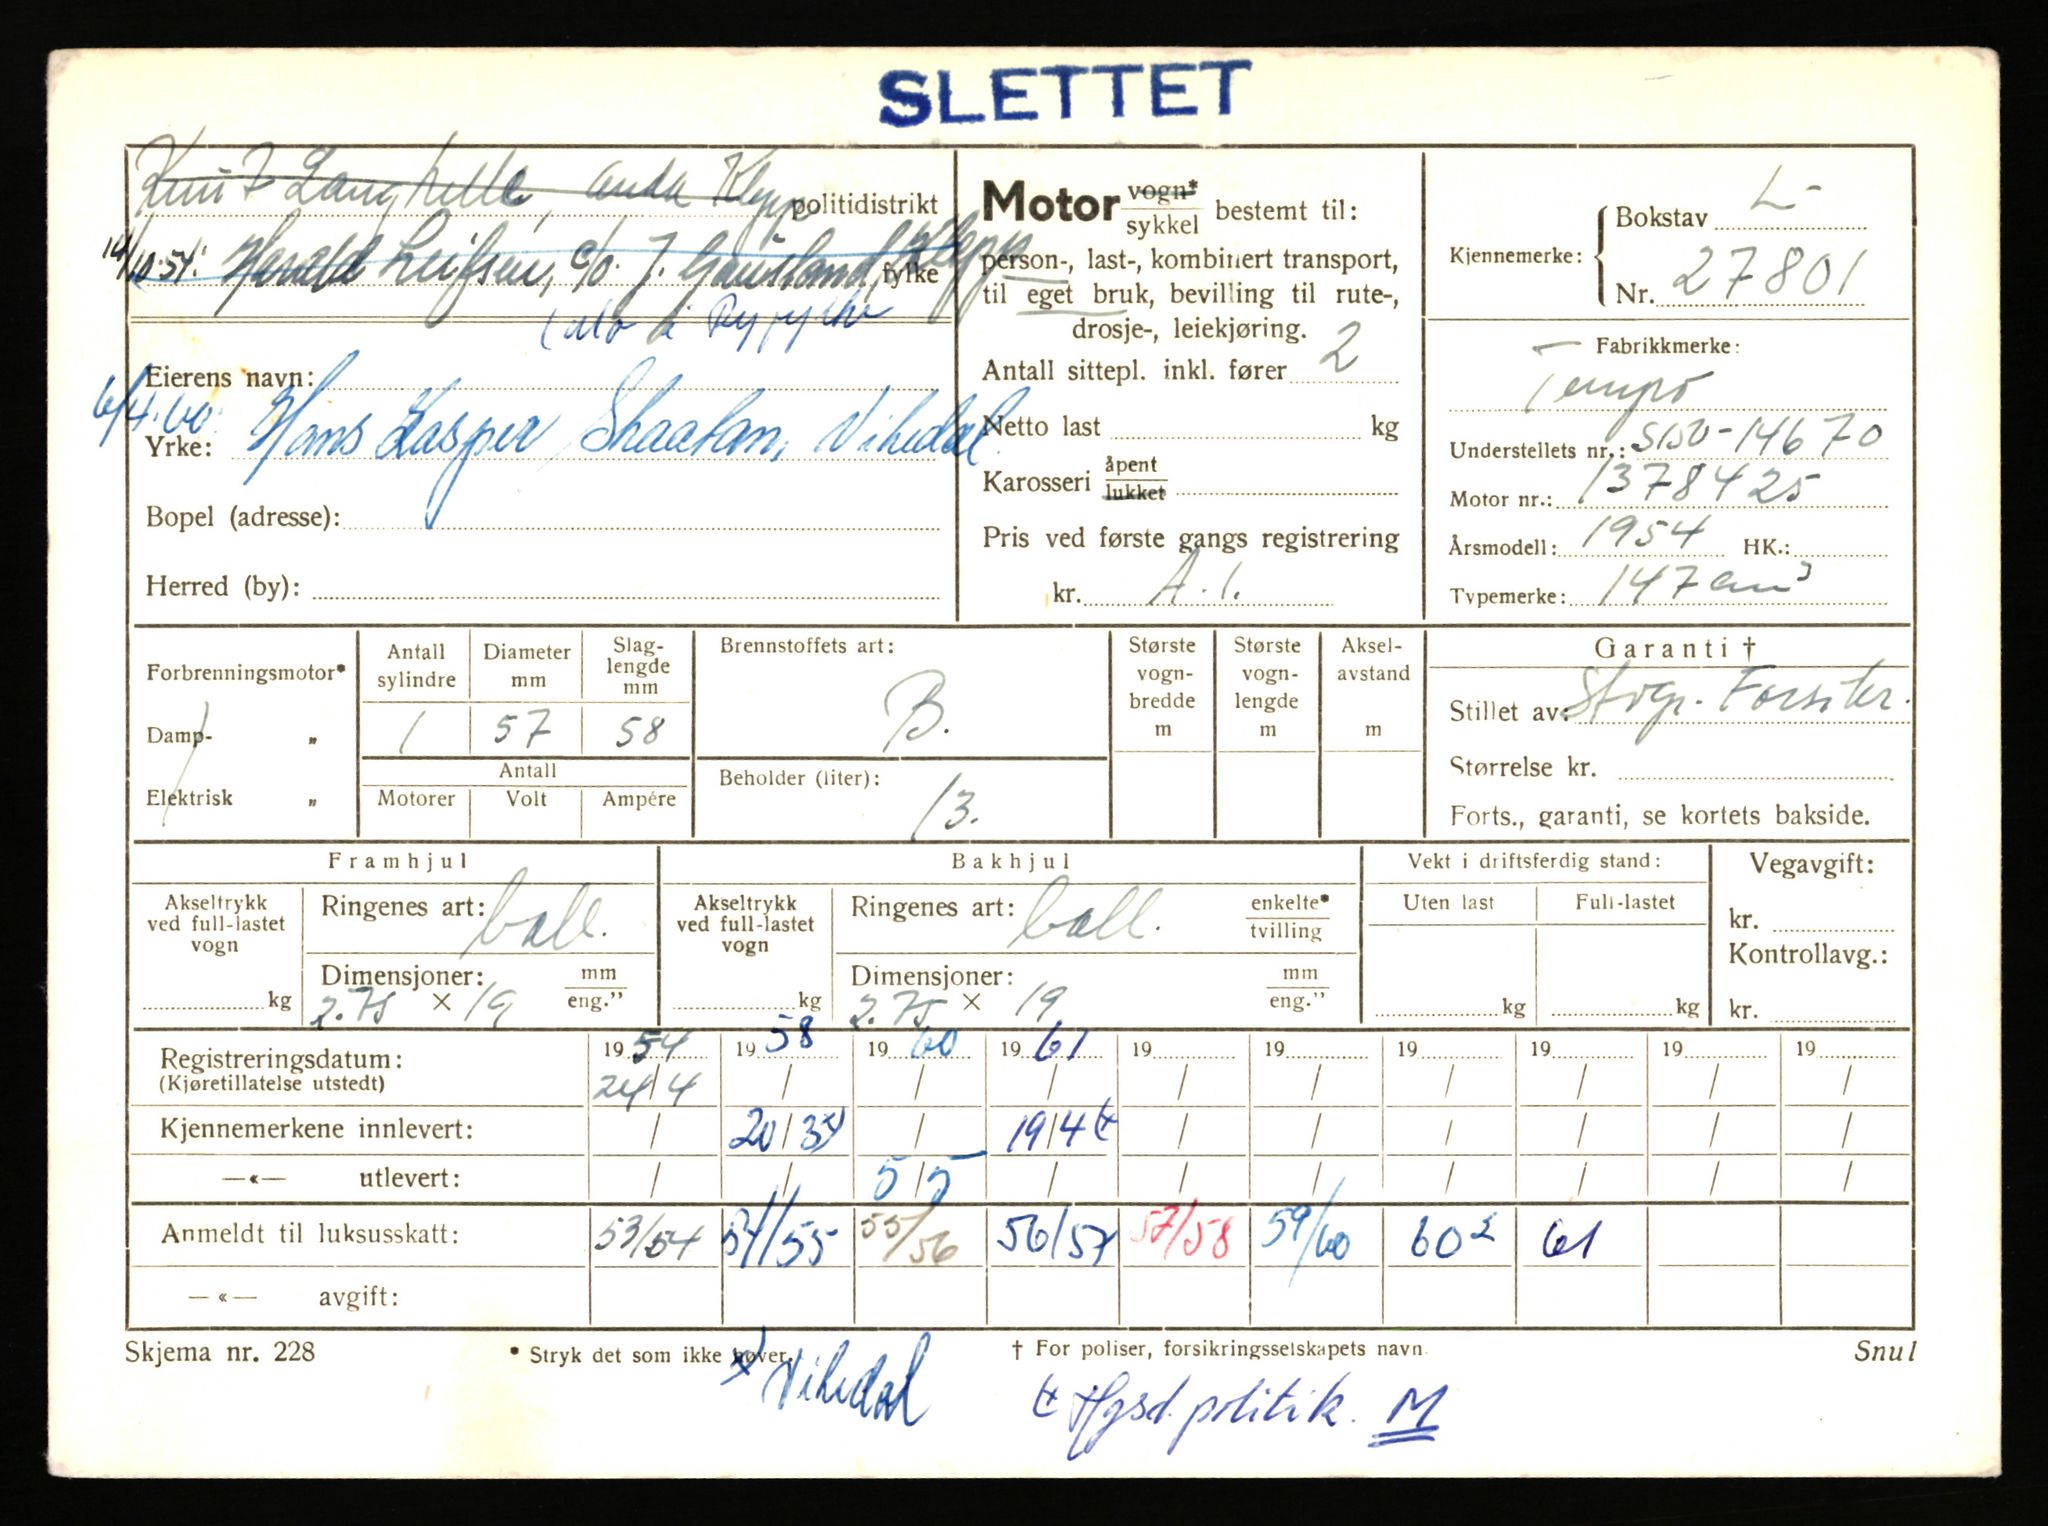 SLETTET
Knut Langhelle, Anda Klepp politidistrikt
14/10.54: Harald Leifsen, c/o. J. Gausland, Klepp fylke
i Ryfylke
Eierens navn:
6/4.60: Hans Kasper Skaatan, Vikedal.
Yrke:
Bopel (adresse):
Herred (by):
Motor vogn* / sykkel bestemt til:
person-, last-, kombinert transport,
til eget bruk, bevilling til rute-,
drosje-, leiekjøring.
Antall sittepl. inkl. fører 2
Netto last kg
Karosseri åpent / lukket
Pris ved første gangs registrering
kr. A.1.
Kjennemerke: Bokstav L-
Nr. 27801
Fabrikkmerke:
Tempo
Understellets nr.: S150-14670
Motor nr.: 1378425
Årsmodell: 1954 HK.:
Typemerke: 147 cm³
Forbrenningsmotor*
Damp- „
Elektrisk „
Antall sylindre 1
Diameter mm 57
Slaglengde mm 58
Antall
Motorer Volt Ampére
Brennstoffets art:
B.
Beholder (liter):
13.
Største vogn-bredde m
Største vogn-lengde m
Aksel-avstand m
Garanti †
Stillet av: Stvgr. Forsiker.
Størrelse kr.
Forts., garanti, se kortets bakside.
Framhjul
Akseltrykk ved full-lastet vogn kg
Ringenes art: ball.
Dimensjoner: mm / eng.”
2.75 × 19
Bakhjul
Akseltrykk ved full-lastet vogn kg
Ringenes art: ball. enkelte* / tvilling
Dimensjoner: mm / eng.”
2.75 × 19
Vekt i driftsferdig stand:
Uten last Full-lastet
kg kg
Vegavgift:
kr.
Kontrollavg.:
kr.
Registreringsdatum: 1954 1958 1960 1961 19 19 19 19 19 19
(Kjøretillatelse utstedt) 24/4 / / / / / / / / /
Kjennemerkene innlevert: / 20/3 x) / 19/4 / / / / / /
—«— utlevert: / / 5/5 / / / / / / /
Anmeldt til luksusskatt: 53/54 54/55 55/56 56/57 57/58 59/60 60² 61
—«— avgift:
Skjema nr. 228
* Stryk det som ikke høver.
† For poliser, forsikringsselskapets navn.
Snul
x) Vikedal
Hgsd. politik. M